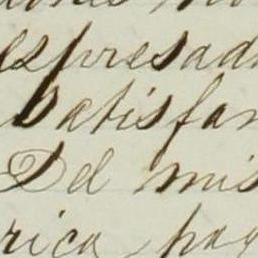 espresad
satisfan
Del mis
rica pag